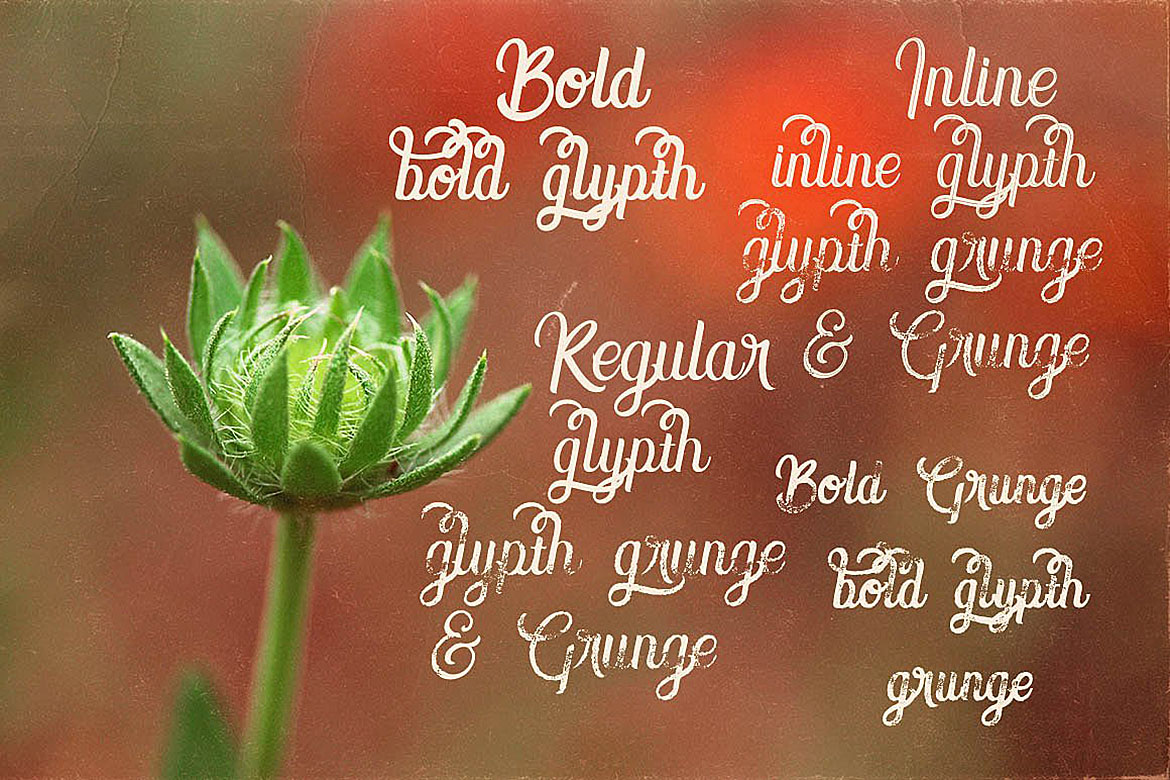 Bold
bold glypth
Inline
inline glypth
glypth grunge
& Grunge
Regular
glypth
glypth grunge
& Grunge
Bold Grunge
bold glypth
grunge